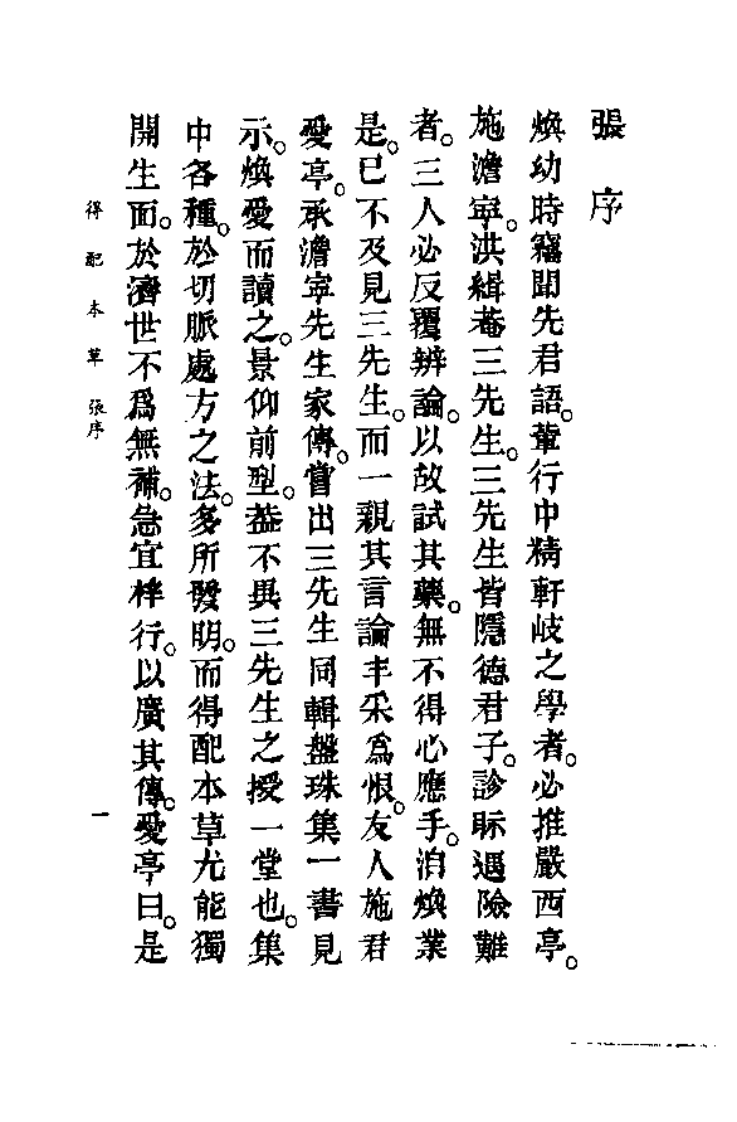 張序
煥幼時竊聞先君語。輩行中精軒岐之學者。必推嚴西亭。
施澹寍。洪緝菴三先生。三先生皆隱德君子。診眎遇險難
者。三人必反覆辨論。以故試其藥。無不得心應手。洎煥業
是。已不及見三先生。而一親其言論丰采爲恨。友人施君
愛亭。承澹寍先生家傳。嘗出三先生同輯盤珠集一書見
示。煥愛而讀之。景仰前型。葢不異三先生之授一堂也。集
中各種。於切脈處方之法。多所發明。而得配本草尤能獨
開生面。於濟世不爲無補。急宜梓行。以廣其傳。愛亭曰。是
得配本草 張序
一